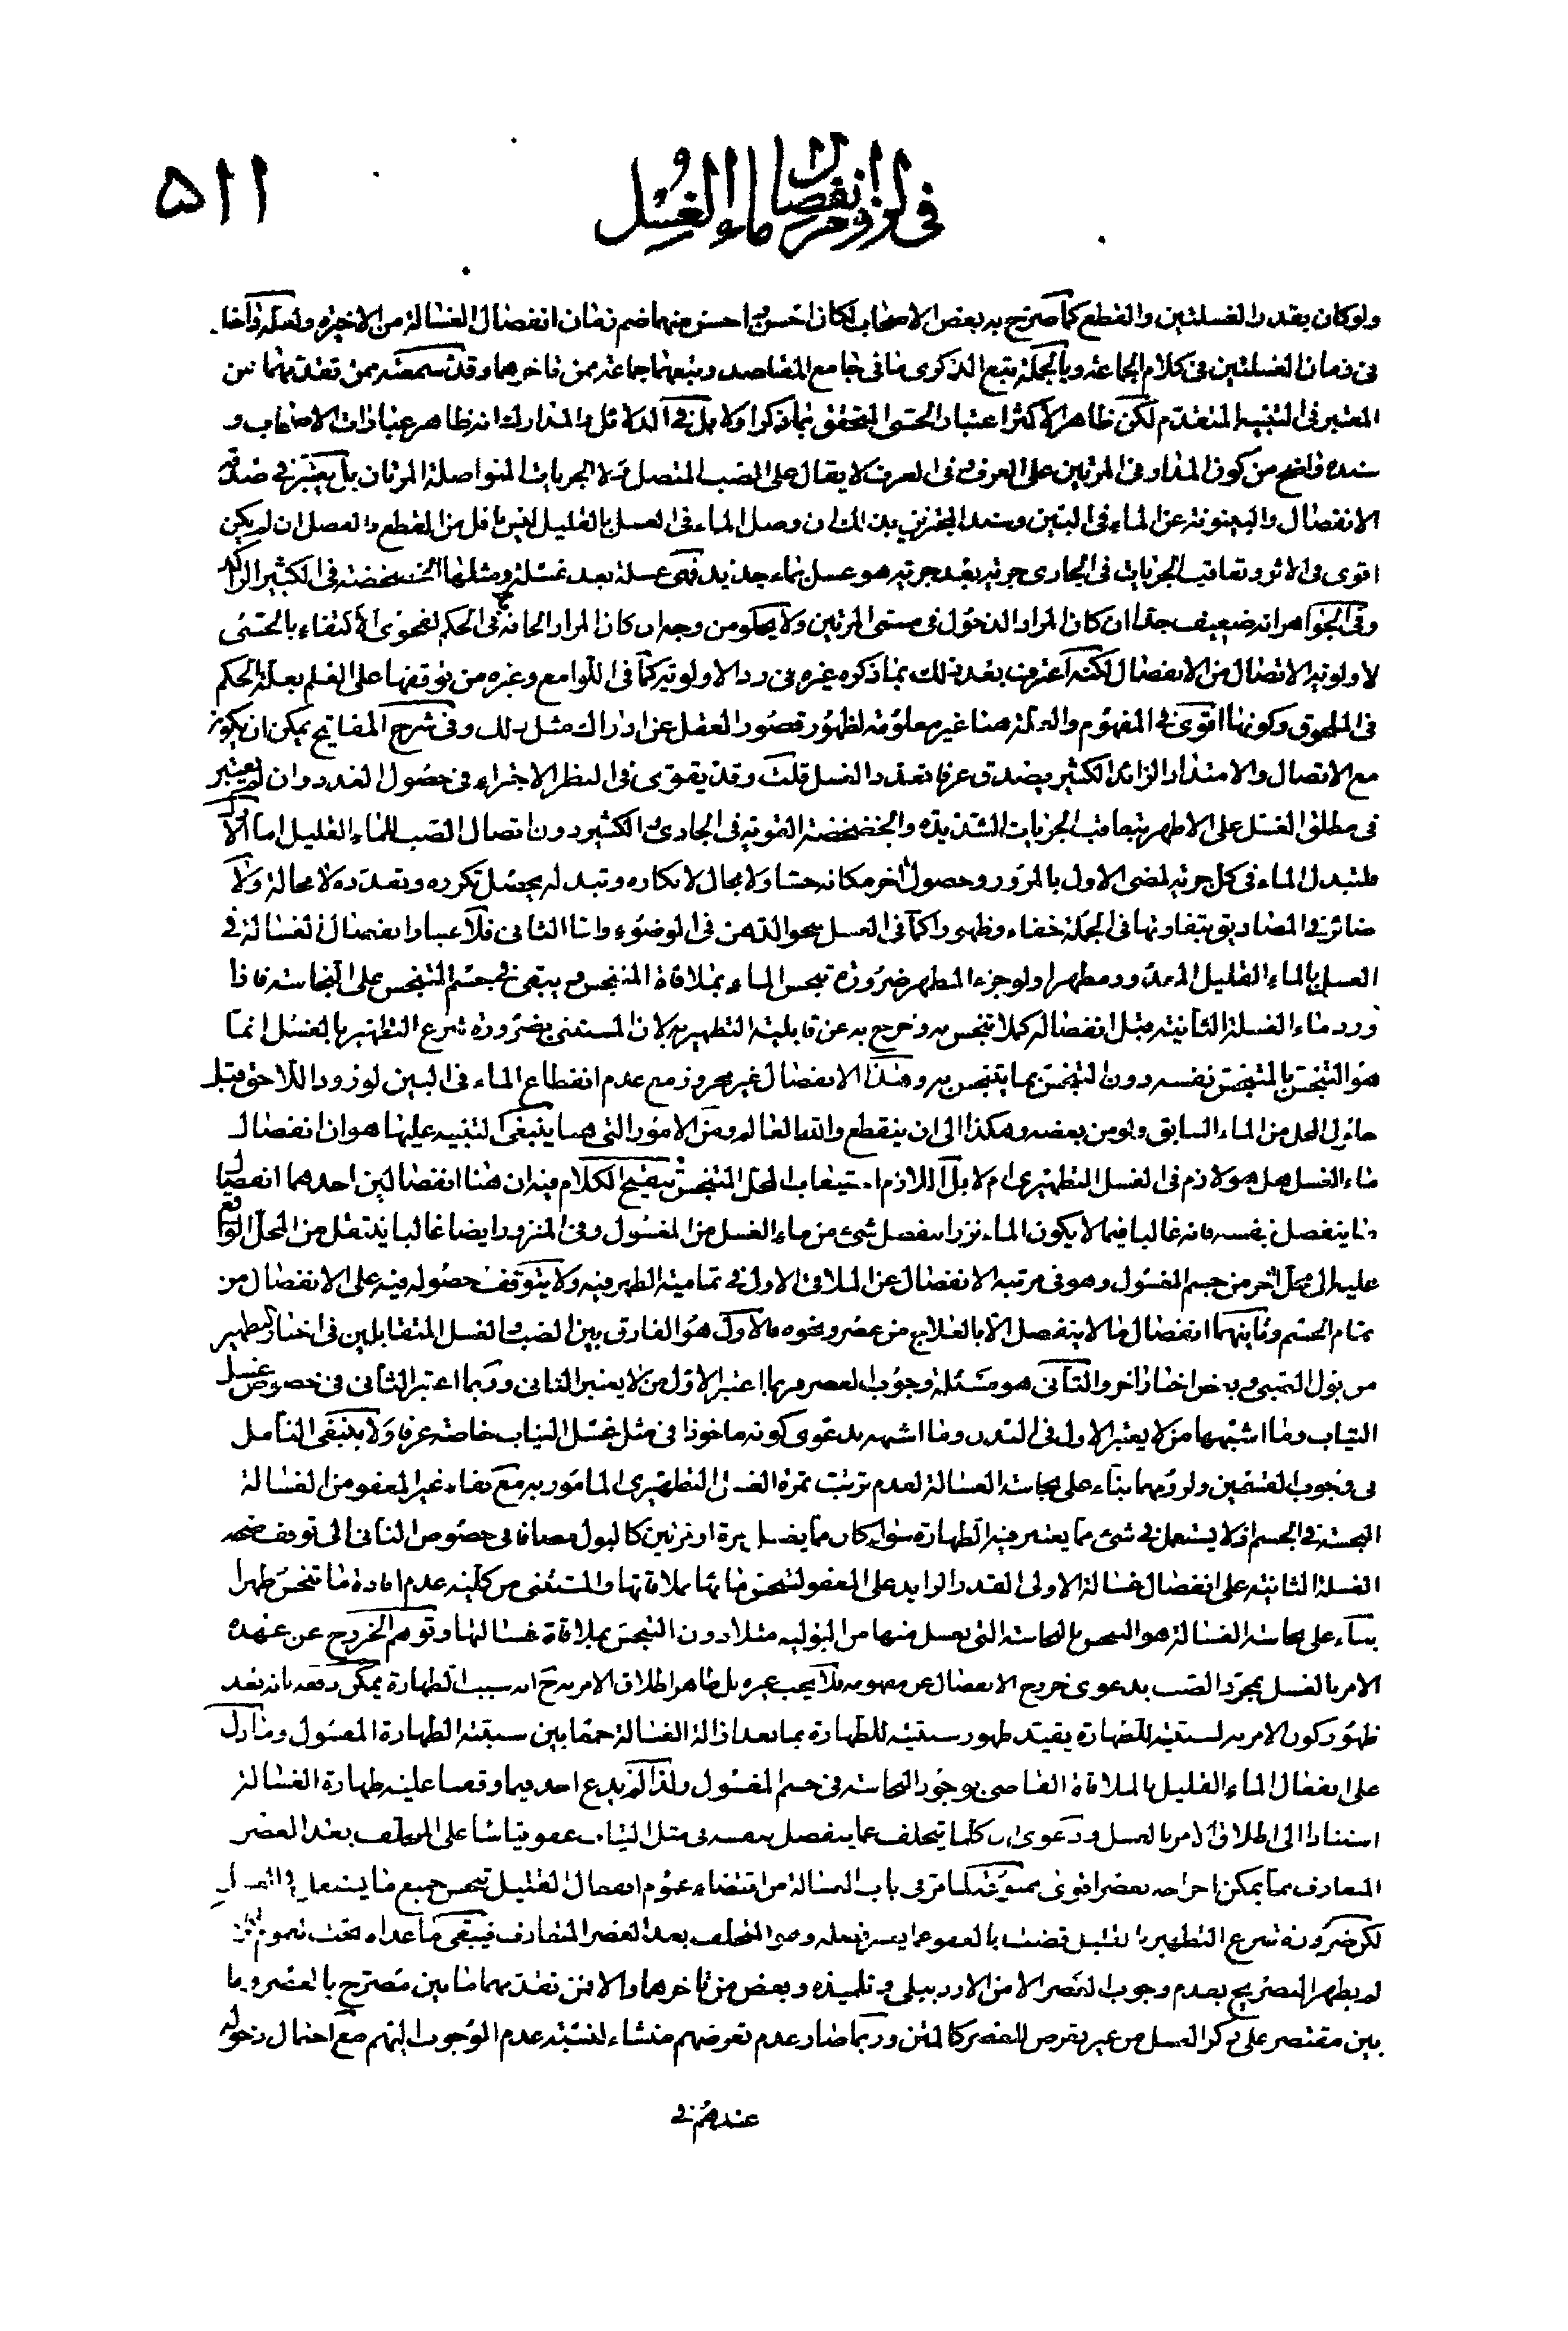 في لزوم انفصال ماء الغسل
٥١١
ولو كان بقدر الغسلتين والقطع كما صرح به بعض الاصحاب لكان احسن واحسن منهما ضم زمان انفصال الغسالة من الاخيرة ولعله داخل
في زمان الغسلتين في كلام الجماعة وبالجملة تبع الذكرى ما في جامع المقاصد وتبعهما جماعة ممن تاخر هما وقد سمعت ممن تقدمهما من
المعتبر في التنبيه المتقدم لكن ظاهر الاكثر اعتبار الحسي المتحقق بما ذكر اولا بل في الدلائل والمدارك انه ظاهر عبارات الاصحاب و
سنده واضح من كون المدار في المرتين على العرف وفي العرف لا يقال على الصب المتصل ولا الجريات المتواصلة المرتان بل يعتبر في صدقه
الانفصال والبينونة عن الماء في البين وسند المجتزين بذلك ان وصل الماء في الغسل بالقليل ليس باقل من القطع والفصل ان لم يكن
اقوى في الاثر وتعاقب الجريات في الجاري جرية بعد جرية هو غسل بماء جديد فهي غسلة بعد غسلة ومثلها الخضخضة في الكثير الراكد
وفي الجواهر انه ضعيف جدا ان كان المراد الدخول في مسمى المرتين ولا يخلو من وجه ان كان المراد الحاقه في الحكم لفحوى الاكتفاء بالحسي
لاولوية الاتصال من الانفصال لكنه اعترف بعد ذلك بما ذكره غيره في رد الاولوية كما في اللوامع وغيره من توقفها على العلم بعلة الحكم
في الملحوق وكونها اقوى في المفهوم والعلة هنا غير معلومة لظهور قصور العقل عن ادراك مثل ذلك وفي شرح المفاتيح يمكن ان يكون
مع الاتصال والامتداد الزائد الكثير يصدق عرفا تعدد الغسل قلت وقد يقوى في النظر الاجتزاء في حصول العدد وان لم يعتبر
في مطلق الغسل على الاظهر بتعاقب الجريات الشديدة والخضخضة القوية في الجاري والكثير دون اتصال الصب للماء القليل اما الاول
فلتبدل الماء في كل جرية لمضي الاول بالمرور وحصول اخر مكانه حسا ولا مجال لانكاره وتبدله يحصل تكرره وتعدده لا محالة ولا
ضائر في المصاديق بتفاوتها في الجملة خفاء وظهورا كما في الغسل بنحو الدهن في الوضوء واما الثاني فلاعتبار انفصال الغسالة في
الغسل بالماء القليل المعدود مطهرا ولو جزء المطهر ضرورة تنجس الماء بملاقاة المتنجس فيبقى في جسم المتنجس على النجاسة فاذا
ورد ماء الغسلة الثانية قبل انفصاله كملا تنجس به وخرج به عن قابلية التطهير به لان المستثنى بضرورة شرع التطهير بالغسل انما
هو التنجس بالمتنجس نفسه دون التنجس بما يتنجس به وهذا الانفصال غير محرز مع عدم انقطاع الماء في البين لورود اللاحق قبل
خلو المحل من الماء السابق ولو من بعضه وهكذا الى ان ينقطع والله العالم ومن الامور التي هنا ينبغي التنبيه عليها هو ان انفصال
ماء الغسل هل هو لازم في الغسل التطهيري ام لا بل اللازم استيعاب المحل المتنجس تنقيح الكلام فيه ان هنا انفصالين احدهما انفصال
ما ينفصل بنفسه فانه غالبا فيما لا يكون الماء نزرا ينفصل شيء من ماء الغسل من المغسول وفي المنزور ايضا غالبا ينتقل من المحل الواقع
عليه الى محل اخر من جسم المغسول وهو في مرتبة الانفصال عن الملاقي الاول في تمامية الطهر فيه ولا يتوقف حصوله فيه على الانفصال من
تمام الجسم وثانيهما انفصال ما لا ينفصل الا بالعلاج من عصر ونحوه فالاول هو الفارق بين الصب والغسل المتقابلين في اخبار التطهير
من بول الصبي وبعض اخبار اخر والثاني هو مسئلة وجوب العصر وربما اعتبر الاول من لا يعتبر الثاني وربما اعتبر الثاني في خصوص غسل
الثياب وما اشبهها من لا يعتبر الاول في البدن وما اشبهه بدعوى كونه ماخوذا في مثل غسل الثياب خاصة عرفا ولا ينبغي التامل
في وجوب القسمين ولزومهما بناء على نجاسة الغسالة لعدم ترتب ثمرة الغسل التطهيري المامور به مع بقاء غير المعفو من الغسالة
النجسة في الجسم اذ لا يستعمل في شيء مما يعتبر فيه الطهارة سواء كان مما يغسل مرة او مرتين كالبول مضافا في خصوص الثاني الى توقف صحة
الغسلة الثانية على انفصال غسالة الاولى القدر الزايد على المعفو لتنجس مائها بملاقاتها والمستثنى من كلية عدم افادة ما تنجس طهرا
بناء على نجاسة الغسالة هو التنجس بالنجاسة التي يغسل منها من البولية مثلا دون التنجس بملاقاة غسالتها وتوهم الخروج عن عهدة
الامر بالغسل بمجرد الصب بدعوى خروج الانفصال عن مفهومه فلا يجب غيره بل ظاهر اطلاق الامر به انه سبب الطهارة يمكن دفعه بانه بعد
ظهور كون الامر به لسببيته للطهارة يقيد ظهور سببيته للطهارة بما بعد ازالة الغسالة جمعا بين سببيته لطهارة المغسول وما دل
على انفعال الماء القليل بالملاقاة القاضي بوجود النجاسة في جسم المغسول ولذا لم يدع احد فيما وقفنا عليه طهارة الغسالة
استنادا الى اطلاق الامر بالغسل ودعوى ان كلما يتخلف عما ينفصل بنفسه في مثل الثياب عفو قياسا على المتخلف بعد العصر
المتعارف مما يمكن اخراجه بعصر اقوى ممنوعة لما مر في باب الغسالة من اقتضاء عموم انفعال القليل تنجس جميع ما يستعمل في الغسل
لكن ضرورة شرع التطهير بالقليل قضت بالعفو عما يعسر فصله وهو المتخلف بعد العصر المتعارف فيبقى ما عداه تحت العموم
لم يظهر التصريح بعدم وجوب العصر الا من الاردبيلي وتلميذه وبعض من تاخرهما والا فمن تقدمهما ما بين مصرح بالعصر وما
بين مقتصر على ذكر الغسل من غير تعرض للعصر كالمتن وربما صار عدم تعرضهم منشاء لنسبة عدم الوجوب اليهم مع احتمال دخوله
عندهم في